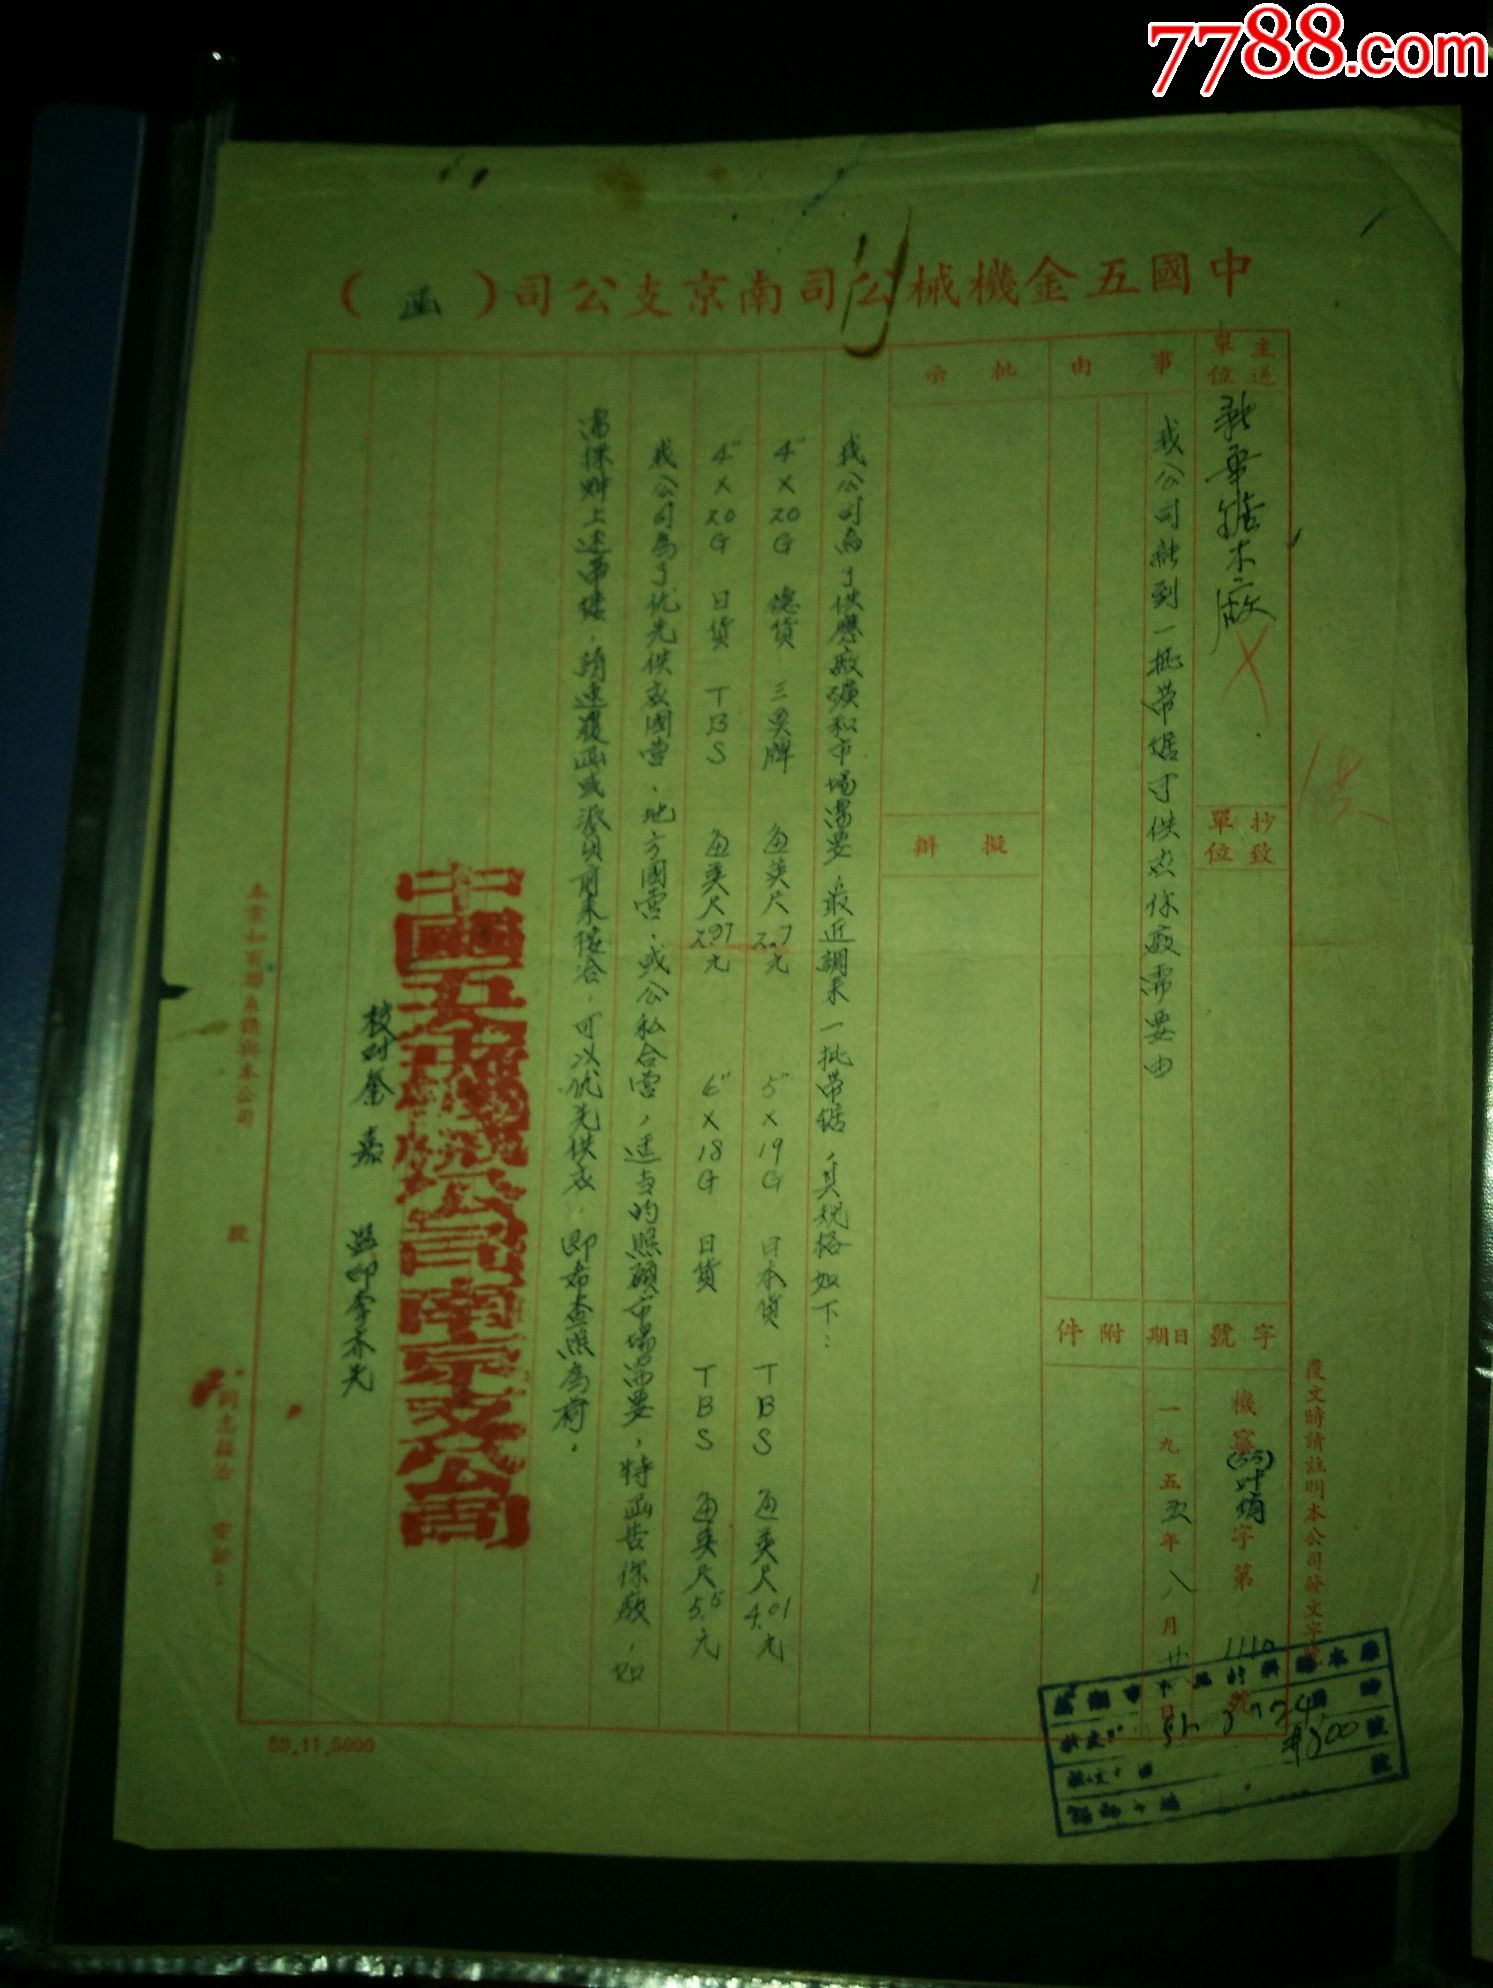 7788.com
中國五金機械公司南京支公司（函）
主送單位
新華锯木廠
抄致單位
字號
機寧(55)叶绢字第1110號
事由
我公司新到一批带锯可供应你廠需要由
日期
一九五五年八月廿
日
附件
批示
擬辦
我公司為了供應廠礦和市场需要，最近調来一批带锯，其規格如下：
4"×20G 德貨 三臭牌 每英尺2.7元 5"×19G 日本貨 TBS 每英尺4.01元
4"×20G 日貨 TBS 每英尺2.97元 6"×18G 日貨 TBS 每英尺5.5元
我公司為了优先供应國营、地方國营、或公私合营，适当的照顾市場需要，特函告你廠，如
需採购上述带锯，請速覆函或派員前来接洽，可以优先供应，即希查照為荷。
中國五金機械公司南京支公司
校对 监印李
本案如有聯系請與本公司 股 同志接洽 電話：
覆文時請註明本公司發文字號
53.11.5000